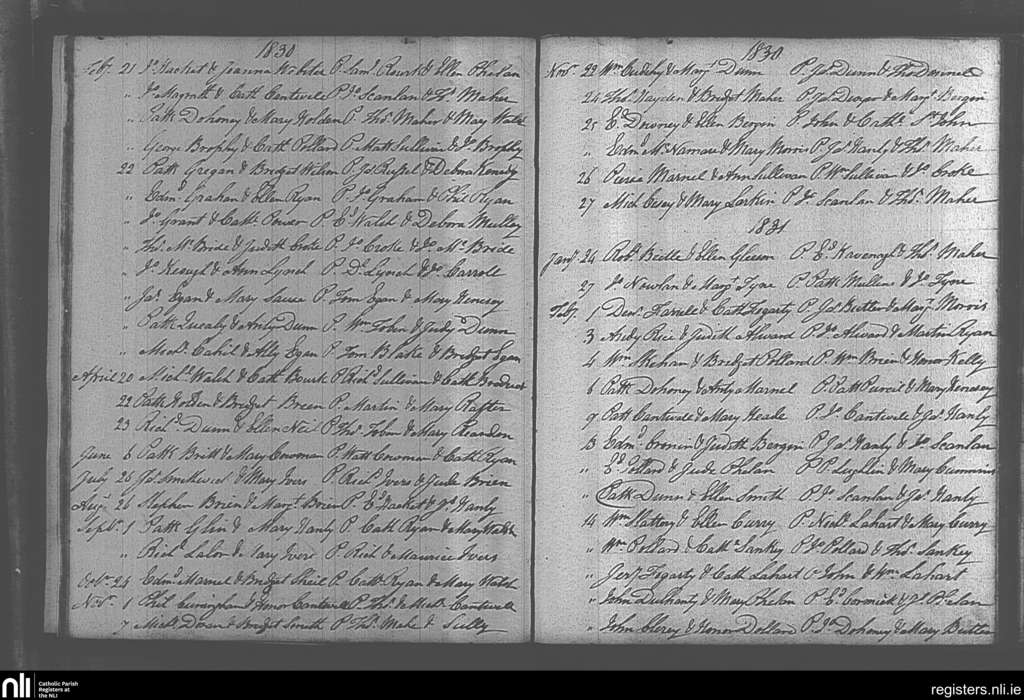 1830
Feby. 21 Js. Hacket & Joanna Webster P. Saml. Rourk & Ellen Phelan
" Js. Magrath & Cath Cantwele P. Js. Scanlan & Ths. Maher
" Patk Dohoney & Mary Holden P. Ths. Maher & Mary Walsh
" George Brophy & Cath Pollard P. Matt Sullivan & Js. Brophy
22 Patk Gregan & Bridget P. Js. & Debora Kenedy
" Edmd. Grahan & Ellen Ryan P. Js. Graham & Phil Ryan
" Js. Grant & Cath. Power P. Ed. Walsh & Debora
" Ths. Mc. Bride & Judith Croke P. Js. Croke & Js. Mc. Bride
" Js. Keough & Ann Lynch P. Ds. Lynch & Js. Carroll
" Jas. Egan & Mary P. Tom Egan & Mary
" Patk & Dunn P. Wm. Tobin & Judy Dunn
" Michl. Cahil & Ally Egan P. Tom Blake & Bridget Egan
April 20 Michl. Walsh & Cath Bourk P. Richd. Sullivan & Cath
22 Patk Holden & Bridget Breen P. Martin & Mary Rafter
23 Richd. Dunn & Ellen Neil P. Ths. Tobin & Mary
June 6 Patk Britt & Mary Cowman P. Watt Cowman & Cath Ryan
July 25 Js. & Mary Ivers P. Richd. Ivers & Jude Brien
Augt. 26 Stephen Brien & Margt. Brien P. Ed. Hacket & Js. Hanly
Septbr. 1 Patk & Mary Hanly P. Cath Ryan & Mary Walsh
" Richd Lalor & Mary Ivers P. Rich & Maurice Ivers
Octbr. 24 Edmd. Marnel & Bridget Sheil P. Cath Ryan & Mary Walsh
Novr. 1 Phil Cuningham & Honor Cantwell P. Ths. & Michl. Cantwell
7 Michl. & Bridget Smith P. Ths. & Scully
1830
Novr. 22 Wm. Cudihy & Margt. Dunn P. Js. Dunn & Ths.
24 Ths. Hayden & Bridget Maher P. Js. Dwyer & Margt. Bergin
25 Ed. Downey & Ellen Bergin P. John & Cathe. St. John
" Edmd. McNamara & Mary Morris P. Js. Hanly & Ths. Maher
26 Pierce Marnel & Ann Sullivan P. Wm. Sullivan & Js. Croke
27 Mich & Mary Larkin P. Js. Scanlan & Ths. Maher
1831
Jany. 24 Robt. & Ellen Gleeson P. Ed. Kavenagh & Ths. Maher
27 Js. Nowlan & Margt. Tyne P. Patk Mullens & Js. Tyne
Feby. 1 Denis & Cath Fogarty P. Js. Butler & Margt. Morris
3 Andy Rice & Judith Alward P. Js. Alward & Martin Ryan
4 Wm. Mehan & Bridget Pollard P. Wm Breen & Honor Kelly
6 Patk Dohoney & Marnel P. Patk Purcel & Mary
9 Patk Cantwele & Mary Heade P. Js. Cantwele & Js. Hanly
13 Edmd. Cronin & Judith Bergin P. Js. Hanly & Js. Scanlan
" Ed. Pollard & Jude Phelan P. P. Loghlin & Mary Cummins
" Patk Dunn & Ellen Smith P. Js. Scanlan & Js. Hanly
14 Wm. Slattery & Ellen Curry P. Nichs. Lahart & Mary Curry
" Wm. Pollard & Cath. Sankey P. Js. Pollard & Ths. Sankey
" Jery. Fogarty & Cath Lahart P. John & Wm. Lahart
" John Dulhanty & Mary Phelan P. Ed. Cormick & Js. Phelan
" John Clerey & Honor Dollard P. Js. Dohoney & Mary Butler
nli
Catholic Parish
Registers at
the NLI
registers.nli.ie